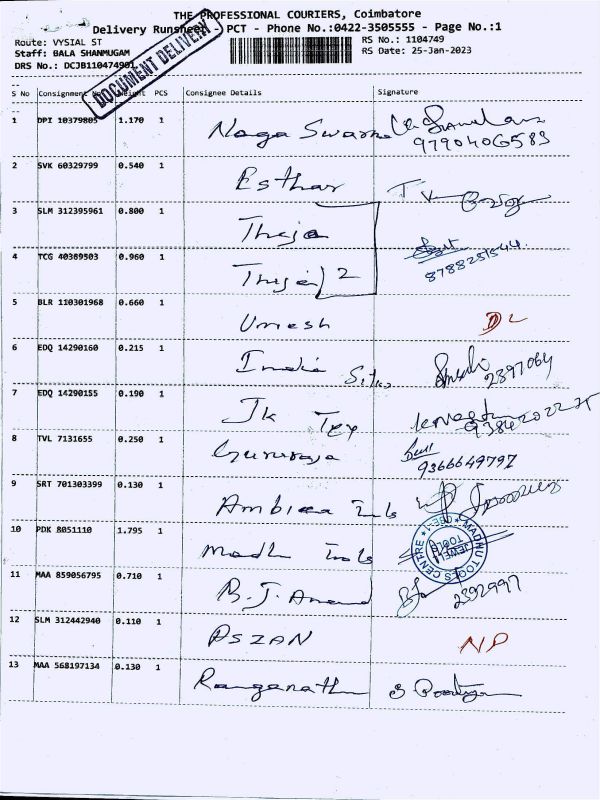 THE PROFESSIONAL COURIERS, Coimbatore
Delivery Runsheet - PCT - Phone No.:0422-3505555 - Page No.:1
Route: VYSIAL ST
RS No.: 1104749
Staff: BALA SHANMUGAM
RS Date: 25-Jan-2023
DRS No.: DCJB110474901
DOCUMENT DELIVERY
S No Consignment No Weight PCS Consignee Details Signature
1 DPI 10379805 1.170 1 Naga Swarna
9790406583
2 SVK 60329799 0.540 1 Esthar
3 SLM 312395961 0.800 1 Theja
4 TCG 40369503 0.960 1 Theja 2
8788251544
5 BLR 110301968 0.660 1 Umesh DL
6 EDQ 14290160 0.215 1 India Silks
2397064
7 EDQ 14290155 0.190 1 Jk Tex
8 TVL 7131655 0.250 1 Gururaja
9366649797
9 SRT 701303399 0.130 1 Ambica Tools
10 PDK 8051110 1.795 1 Madhu Tools
MADHU TOOLS CENTRE CBE-1
JEWEL TOOLS
11 MAA 859056795 0.710 1 B.J. Anand
2392997
12 SLM 312442940 0.110 1 PSZAN NP
13 MAA 568197134 0.130 1 Ranganath